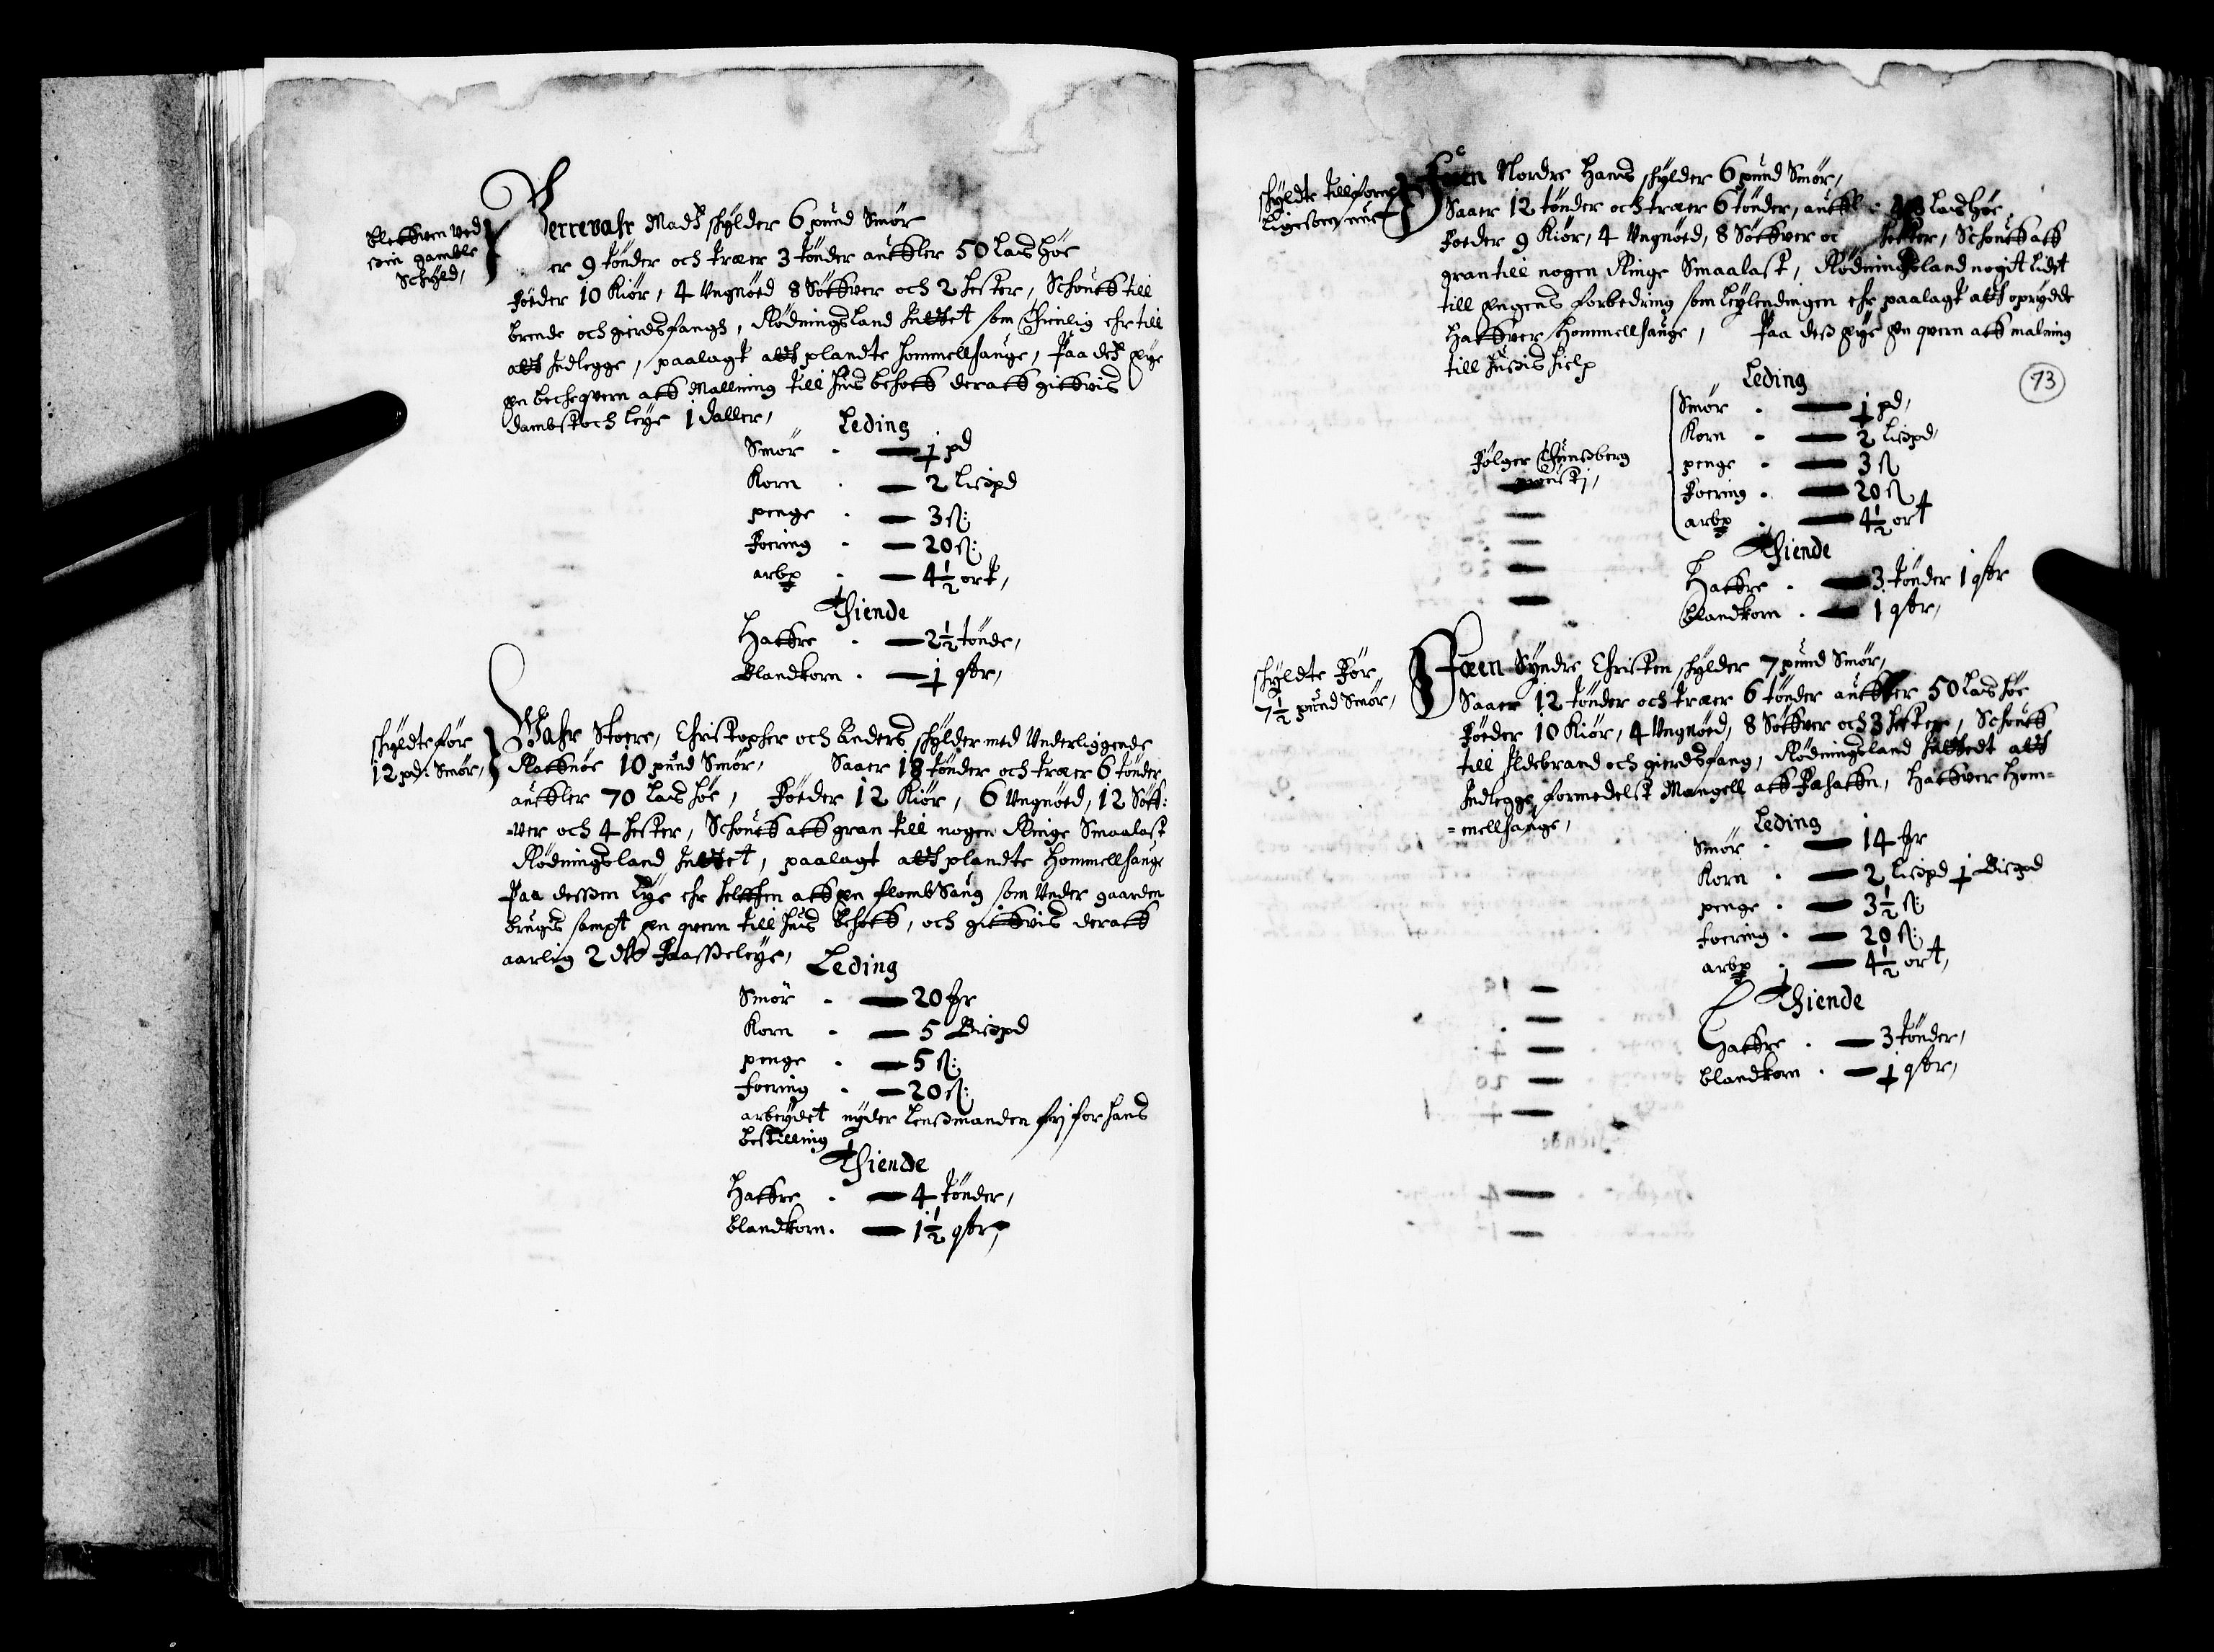 bleffven ved
sin gamble
Schyld,
Herrevahr Madtz schylder 6 pund Smør
er 9 tønder och træer 3 tønder auffler 50 Lass høe
Føeder 10 Kiør, 4 Ungnøed 8 Søffver och 2 hester, Schouff till
brende och gierdsfangh, Rødningsland Inttet som thienlig ehr till
att Indlegge, paalagt att plandte hommellhauge, Paa dess eye
en becheqvern aff Mallning till huus behoff deraff giffvis
dambstoch leye 1 daller,
Leding
Smør - 1 pd
Korn - 2 Lispd
penge - 3 ß:
Foering - 20 ß:
arbp - 4½ ort,
Thiende
Haffre - 2½ tønde,
Blandkorn - 1 qtr,
schyldte før
12 pd: Smør,
Wahr Stoere, Christopher och Anders schylder med Underliggende
Raffnøe 10 pund Smør, Saaer 18 tønder och træer 6 tønder
auffler 70 Lass høe, Føeder 12 Kiør, 6 Ungnøed, 12 Søff:
=ver och 4 hester, Schouff aff gran till nogen Ringe Smaalast
Rødningsland Inttet, paalagt att plandte Hommellhauge
Paa dessen Eye ehr helfften aff en flomb Saug som Under gaarden
brugis sampt en qvern till huus behoff, och giffvis deraff
aarlig 2 dlr Faasseleye,
Leding
Smør - 20 mr
Korn - 5 Bispd
penge - 5 ß:
foering - 20 ß:
arbeydet nyder Lensmanden frj for hans
bestilling
Thiende
Haffre - 4 tønder,
blandkorn - 1½ qtr,
schyldte tillforne
ligesom nue
Foen Nordre Hans schylder 6 pund Smør,
Saaer 12 tønder och træer 6 tønder, auffl Lass høe
Foeder 9 Kiør, 4 Ungnøed, 8 Søffver oc hester, Schouff aff
gran till nogen Ringe Smaalast, Rødningsland nogit lidet
till engens forbedring som leylendingen ehr paalagt att oprydde
Haffver Hommellhauge, Paa dess eye en qvern aff malning
till husis hielp
73
Leding
Smør - 1 pd,
Korn - 2 Lispd,
penge - 3 ß
Foering - 20 ß
arbp - 4½ ort
Følger Thunsberg
Thiende
Haffre - 3 tønder 1 qtr
blandkorn - 1 qtr,
schyldte Før
7½ pund Smør,
Foen Syndre Christen schylder 7 pund Smør,
Saaer 12 tønder och træer 6 tønder auffler 50 Lass høe
Føeder 10 Kiør, 4 Ungnøed, 8 Søffver och 3 hester, Schouff
till Ildebrand och gierdsfang, Rødningsland Inttedt att
Indlegge formedelst Mangell aff Fæhaffn, Haffver Hom=
=mellhauge,
Leding
Smør - 14 mr
Korn - 2 Lispd 1 Bispd
penge - 3½ ß:
foering - 20 ß:
arbp - 4½ ort,
Thiende
Haffre - 3 tønder,
blandkorn - 1 qtr,